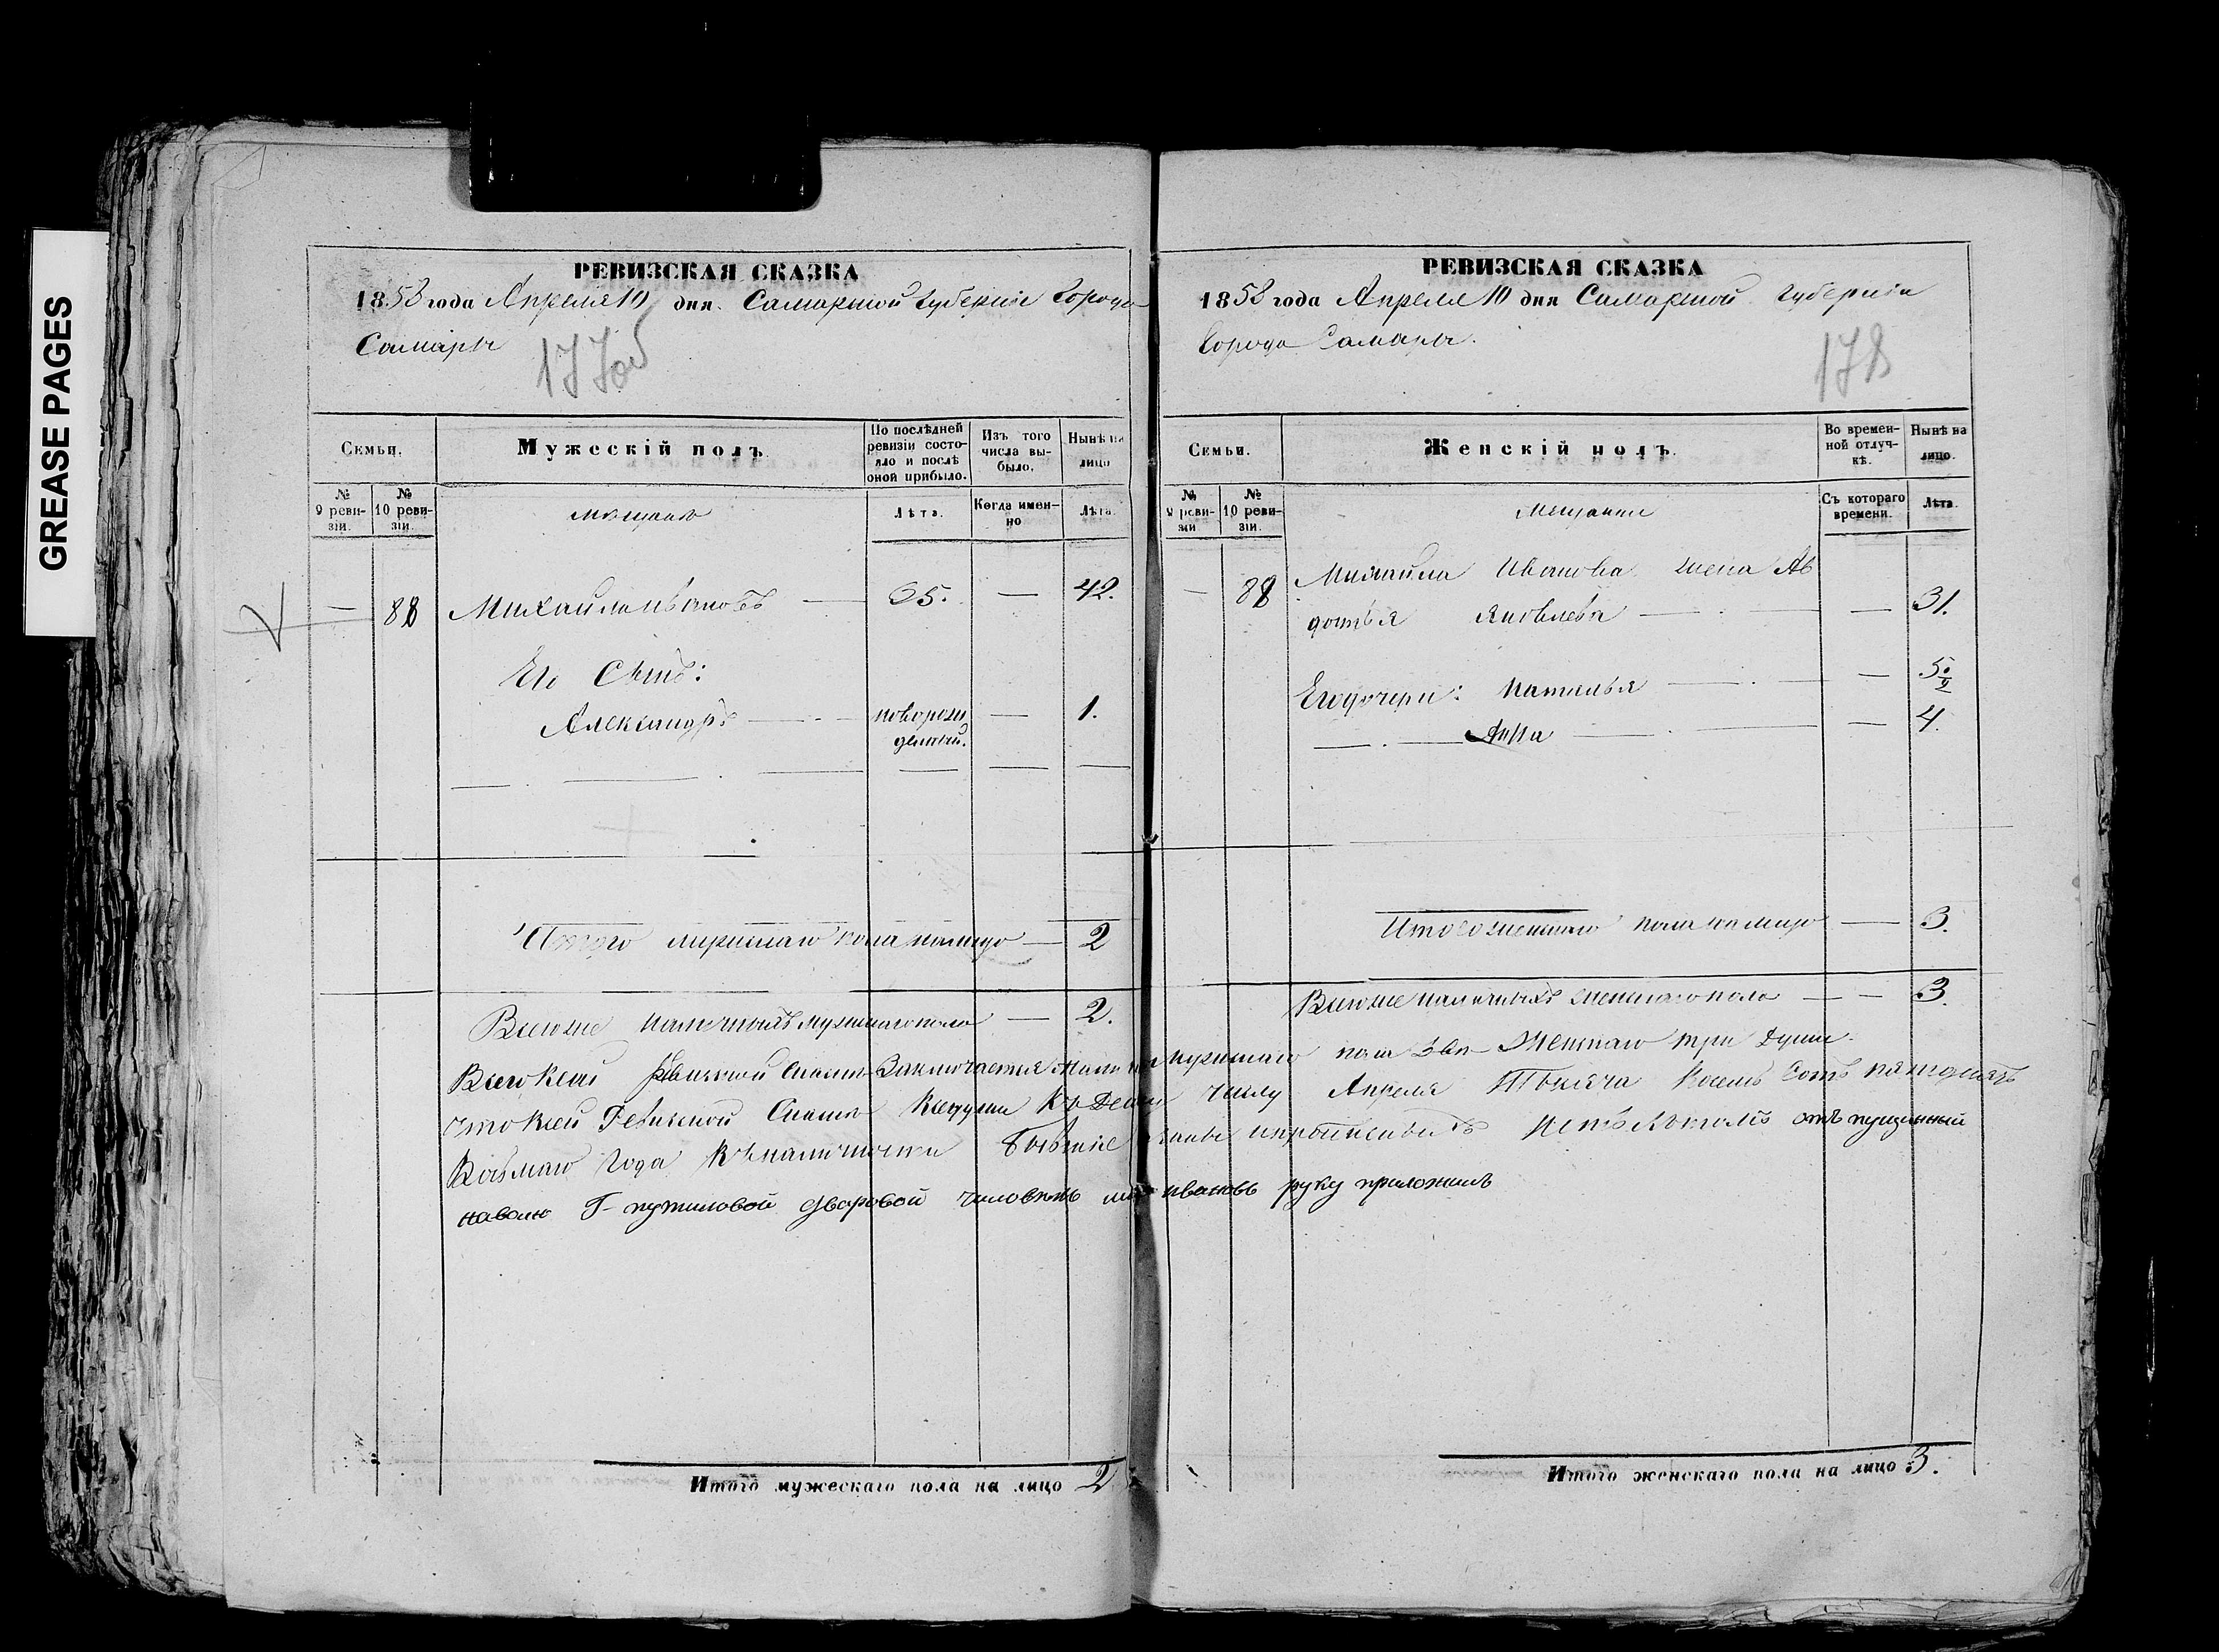 GREASE PAGES
РЕВИЗСКАЯ СКАЗКА
1858 года Апреля 10 дня. Самарской Губерніи Города
Самары
177об
Семьи.
Мужескій полъ.
По послѣдней ревизіи состояло и послѣ оной прибыло.
Изъ того числа выбыло.
Нынѣ на лицо
№ 9 ревизіи.
№ 10 ревизіи.
мещане
Лѣта.
Когда именно
Лѣта.
— 88 Михайла Ивановъ — 35. — 42.
Его Сынъ:
Александръ — новорожденный. — 1.
Итого мужескаго пола налицо — 2
Всего же наличныхъ мужскаго пола — 2.
РЕВИЗСКАЯ СКАЗКА
1858 года Апреля 10 дня Самарской Губерніи
Города Самары.
178
Семьи.
Женскій полъ.
Во временной отлучкѣ.
Нынѣ на лицо.
№ 9 ревизіи
№ 10 ревизіи.
Мещанки
Съ котораго времени.
Лѣта.
— 88 Михайла Иванова жена Ав
дотья Яковлева — — 31.
Его дочери: Наталья — — 5½
— Анна — — 4.
Итого женскаго пола на лицо — 3.
Всего же наличныхъ женскаго пола — — 3.
Всего в сей Ревизской Сказке Заключается мужскаго пола две Женскаго три Души.
что в сей Ревизской Сказке все души Къ числу Апреля Тысяча Восемь Сотъ пятдесятъ
Восьмаго Года Къ наличности нетъ въ томъ отъ пущенный
наволю Г- путиловой дваровой человекъ ивановъ руку приложилъ
Итого мужескаго пола на лицо 2
Итого женскаго пола на лицо 3.